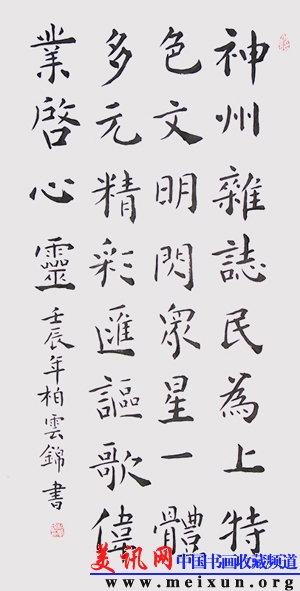 神州雜誌民為上特
色文明閃眾星一體
多元精彩匯謳歌偉
業啓心靈
壬辰年柏雲錦書
美讯网 中国书画收藏频道
www.meixun.org